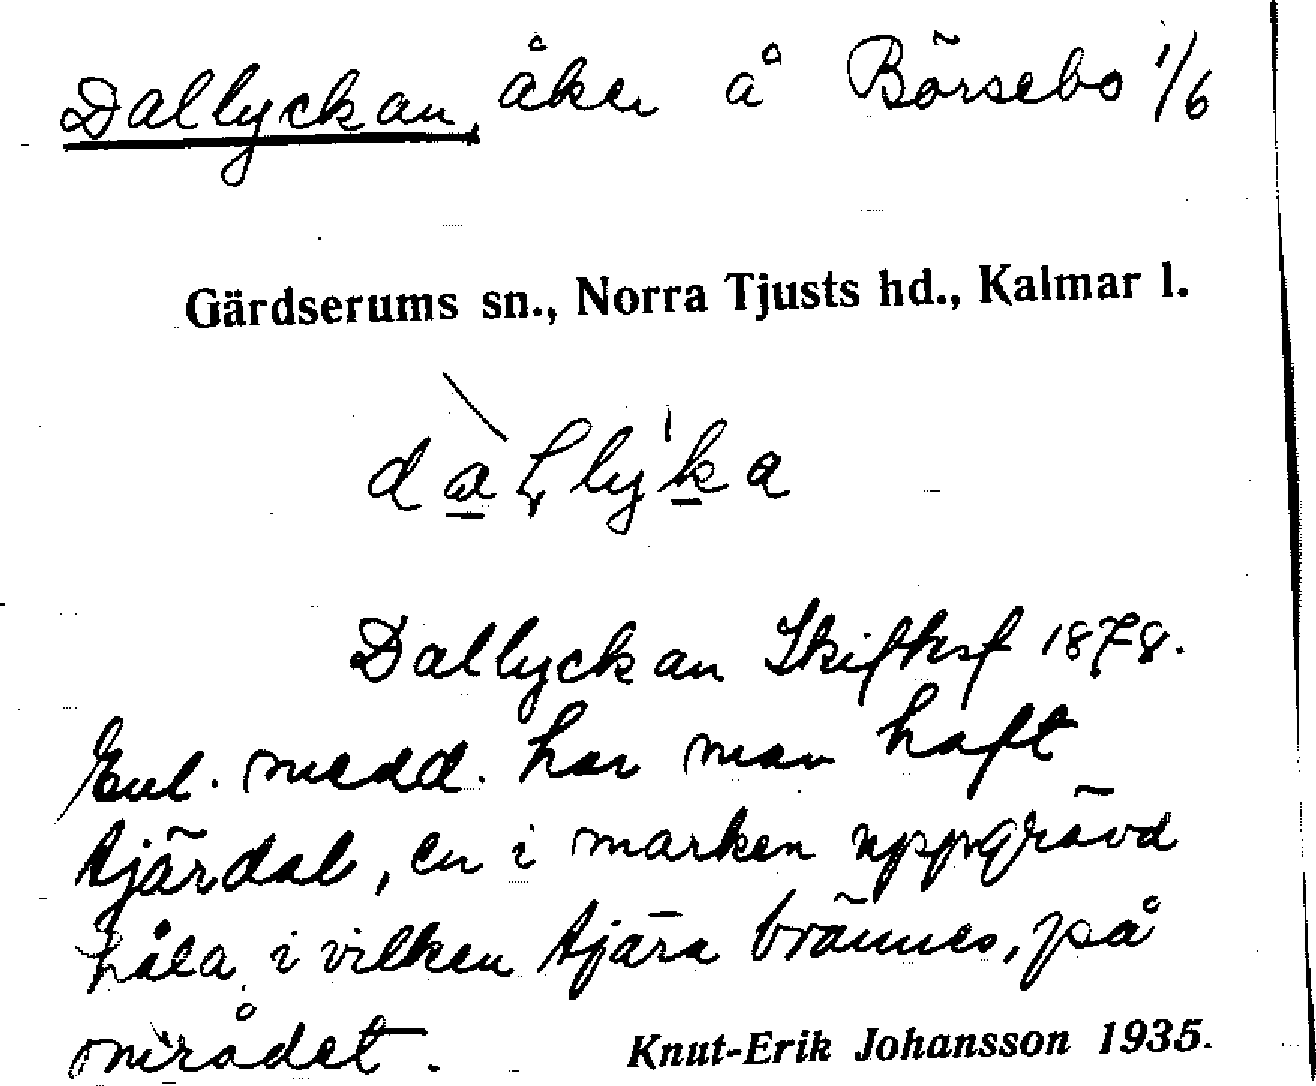 Dallyckan, åker å Börsebo 1/6
Gärdserums sn., Norra Tjusts hd., Kalmar l.
Dallyckan Skifteskf 1878.
Enl. medd. har man haft
tjärdal, en i marken uppgrävd
håla i vilken tjära brännes, på
området.
Knut-Erik Johansson 1935.